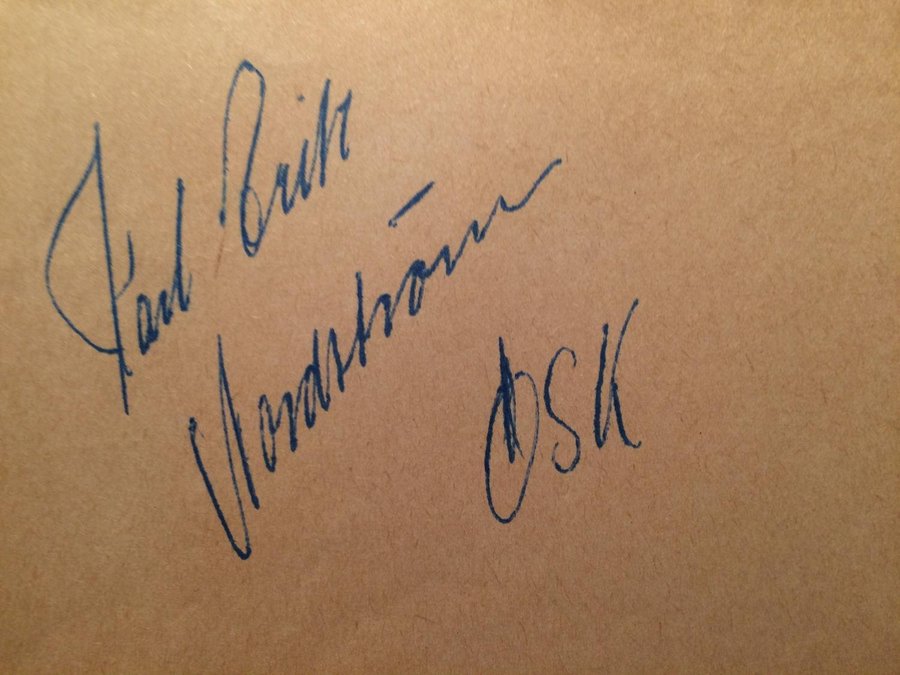 Karl Erik
Nordström
ÖSK